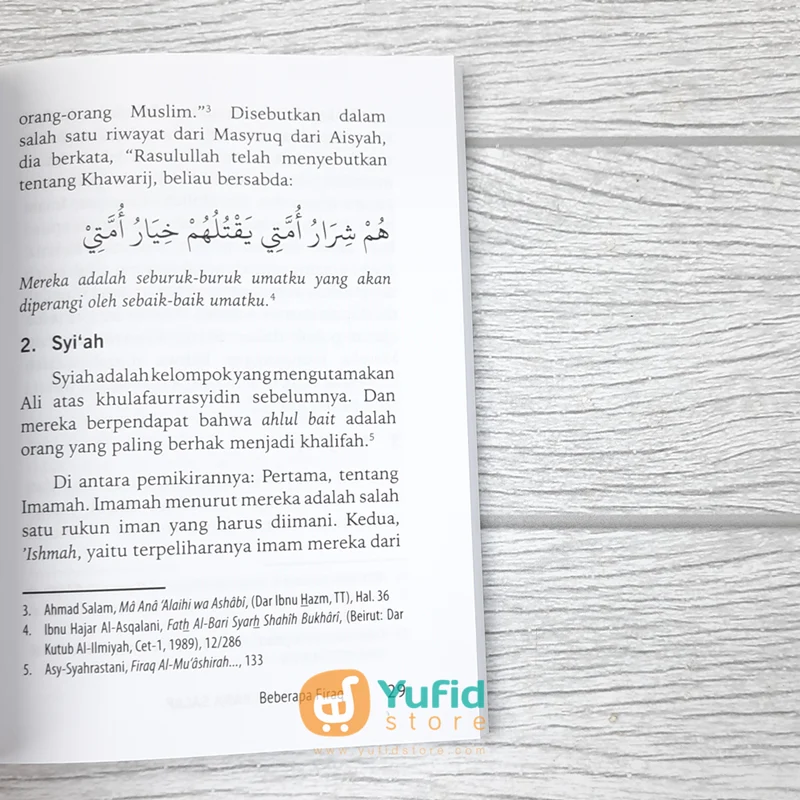 orang-orang Muslim."³ Disebutkan dalam
salah satu riwayat dari Masyruq dari Aisyah,
dia berkata, "Rasulullah telah menyebutkan
tentang Khawarij, beliau bersabda:
هُمْ شِرَارُ أُمَّتِي يَقْتُلُهُمْ خِيَارُ أُمَّتِيْ
Mereka adalah seburuk-buruk umatku yang akan
diperangi oleh sebaik-baik umatku.⁴
2. Syi‘ah
Syiah adalah kelompok yang mengutamakan
Ali atas khulafaurrasyidin sebelumnya. Dan
mereka berpendapat bahwa ahlul bait adalah
orang yang paling berhak menjadi khalifah.⁵
Di antara pemikirannya: Pertama, tentang
Imamah. Imamah menurut mereka adalah salah
satu rukun iman yang harus diimani. Kedua,
'Ishmah, yaitu terpeliharanya imam mereka dari
3. Ahmad Salam, Mâ Anâ 'Alaihi wa Ashâbî, (Dar Ibnu Hazm, TT), Hal. 36
4. Ibnu Hajar Al-Asqalani, Fath Al-Bari Syarh Shahîh Bukhârî, (Beirut: Dar
Kutub Al-Ilmiyah, Cet-1, 1989), 12/286
5. Asy-Syahrastani, Firaq Al-Mu'âshirah..., 133
Beberapa Firaq 29
Yufid
store
www.yufidstore.com